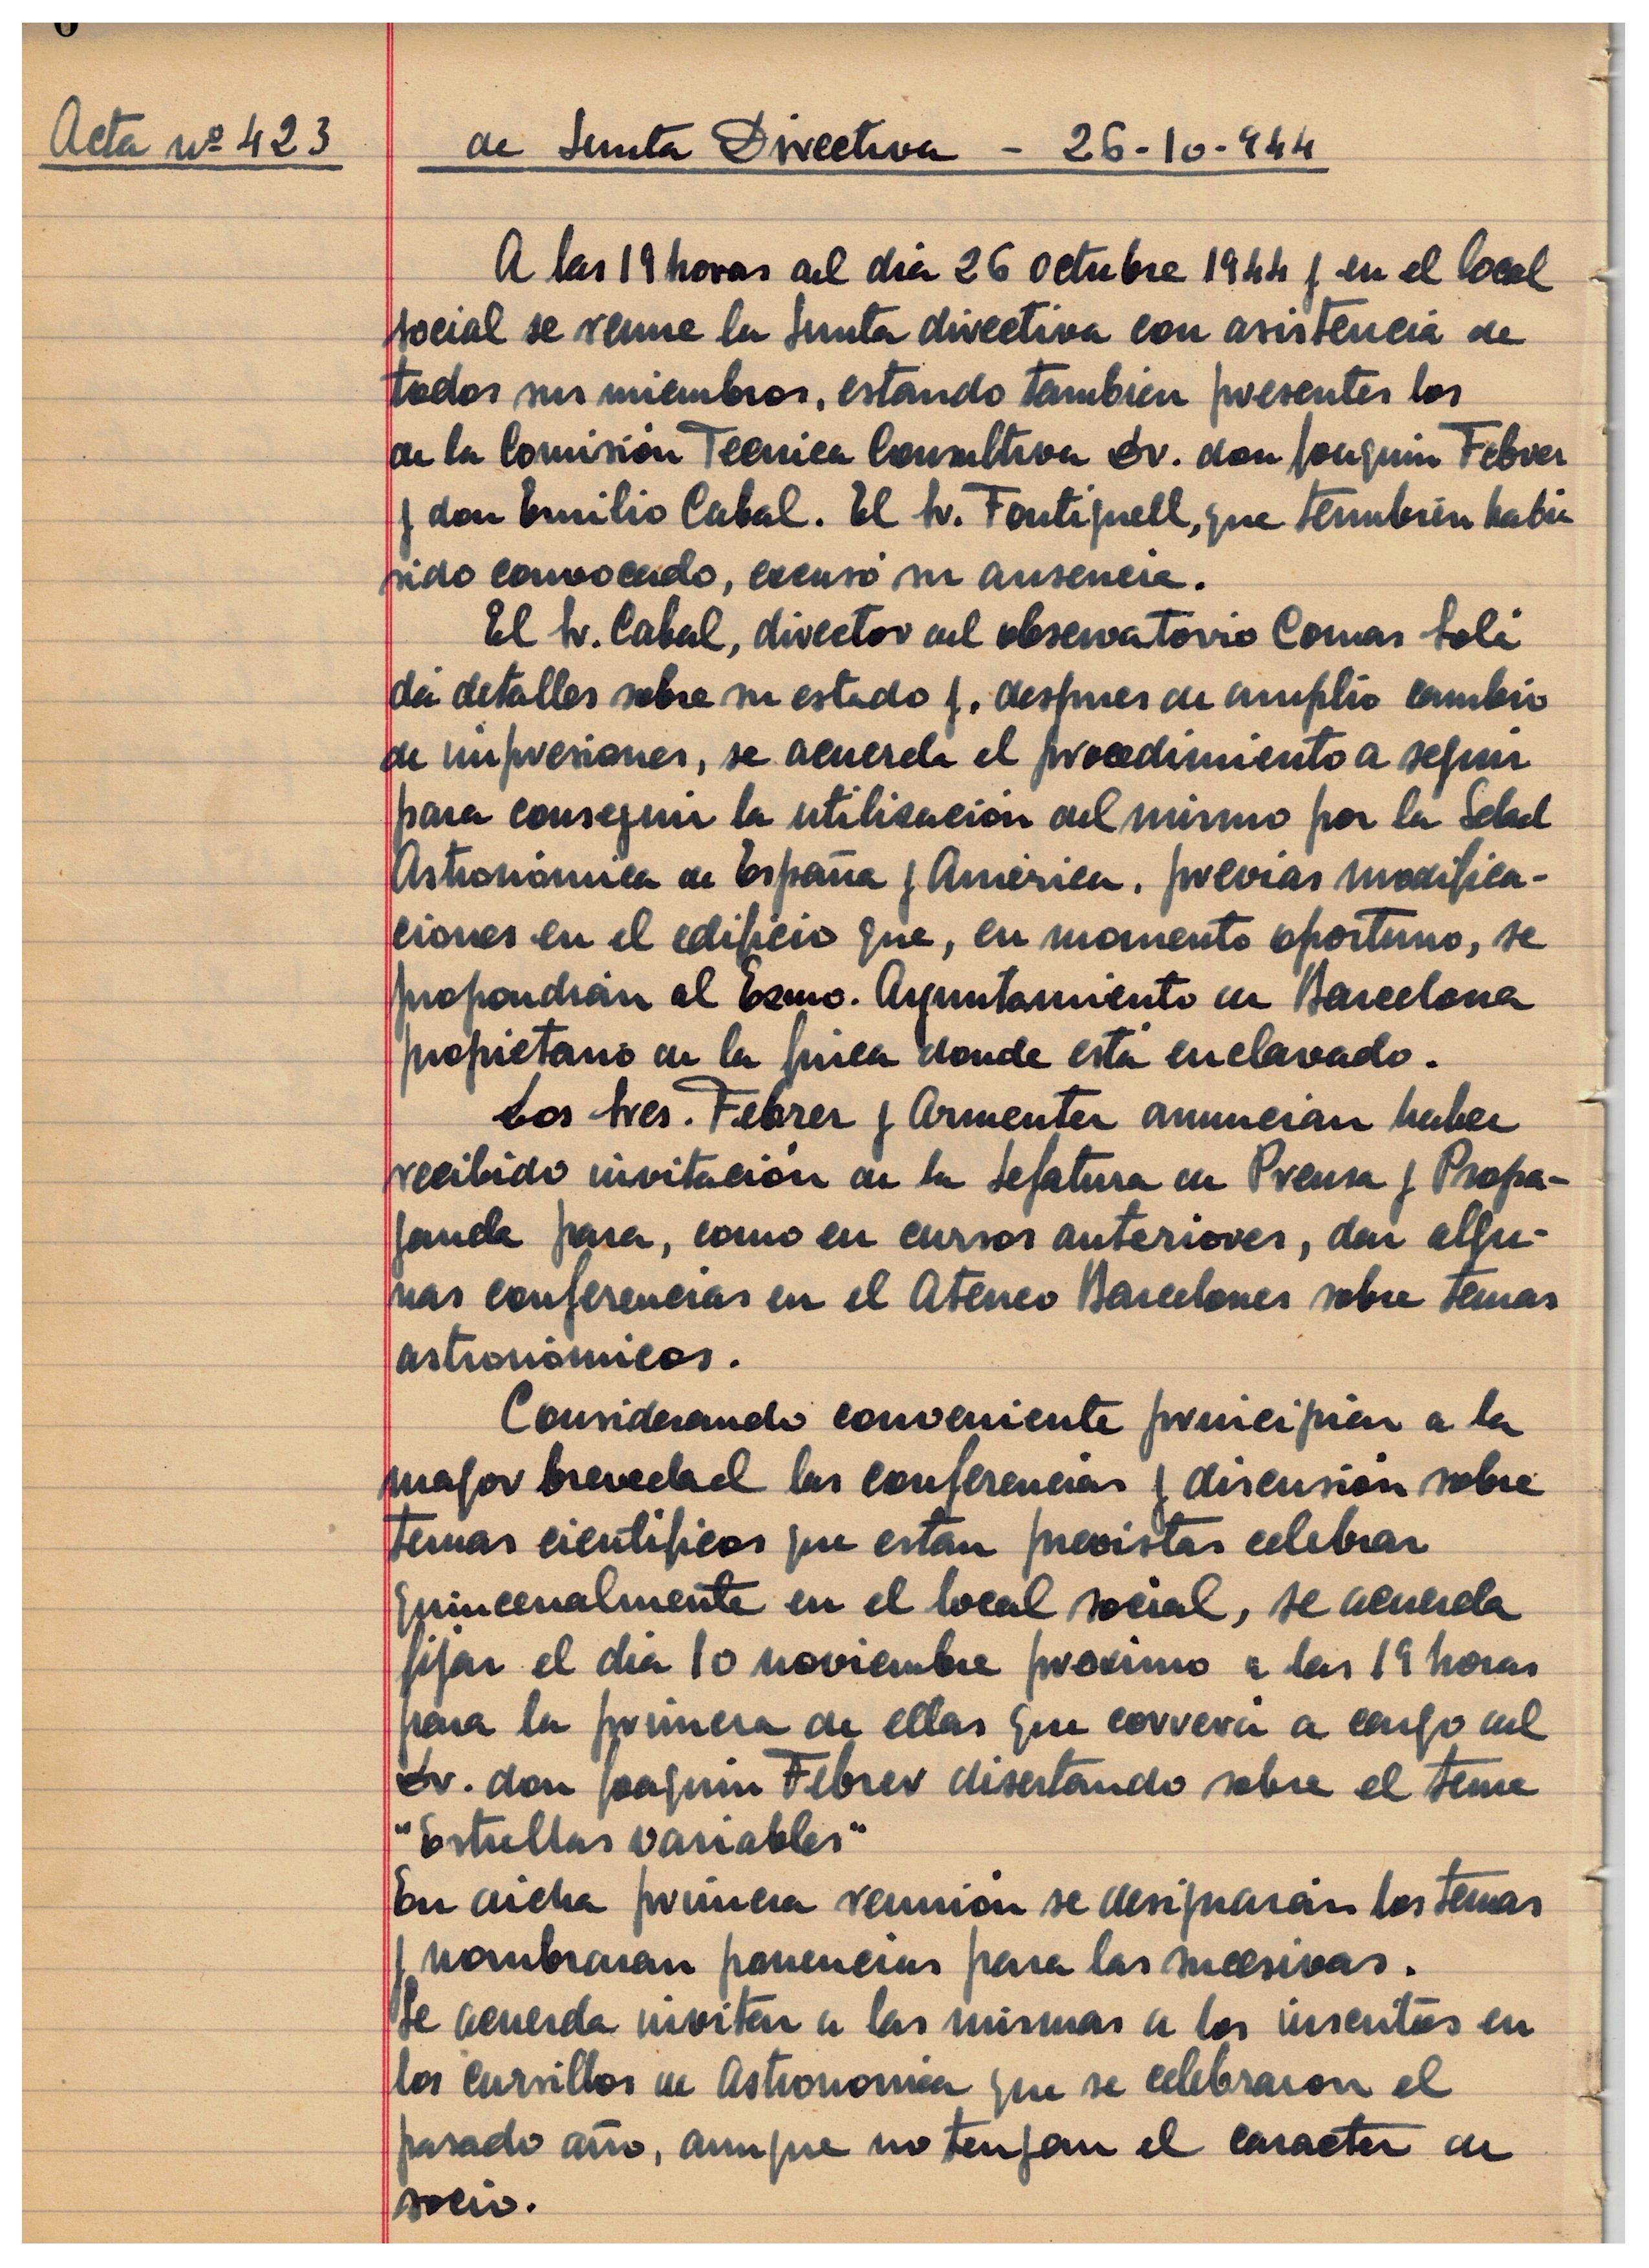 Acta nº 423 de Junta Directiva - 26-10-944
A las 19 horas del dia 26 octubre 1944 y en el local
social se reune la Junta directiva con asistencia de
todos sus miembros, estando tambien presentes los
de la Comisión Tecnica Consultiva Dr. don Joaquin Febrer
y don Emilio Cabal. El Sr. Fontiguell, que tambien habia
sido convocado, excusó su ausencia.
El Sr. Cabal, director del observatorio Comas Solá
dá detalles sobre su estado y, despues de amplio cambio
de impresiones, se acuerda el procedimiento a seguir
para conseguir la utilización del mismo por la Sdad
Astronómica de España y América, previas modifica-
ciones en el edificio que, en momento oportuno, se
propondrán al Exmo. Ayuntamiento de Barcelona
propietario de la finca donde está enclavado.
Los Sres. Febrer y Armenter anuncian haber
recibido invitación de la Jefatura de Prensa y Propa-
ganda para, como en cursos anteriores, dar algu-
nas conferencias en el Ateneo Barcelones sobre temas
astronómicos.
Considerando conveniente principiar a la
mayor brevedad las conferencias y discusión sobre
temas cientificos que estan previstas celebrar
quincenalmente en el local social, se acuerda
fijar el dia 10 noviembre proximo a las 19 horas
para la primera de ellas que correrá a cargo del
Dr. don Joaquin Febrer disertando sobre el tema
"Estrellas variables"
En dicha primera reunión se designarán los temas
y nombraran ponencias para las sucesivas.
Se acuerda invitar a las mismas a los inscritos en
los cursillos de Astronomia que se celebraron el
pasado año, aunque no tengan el caracter de
socio.